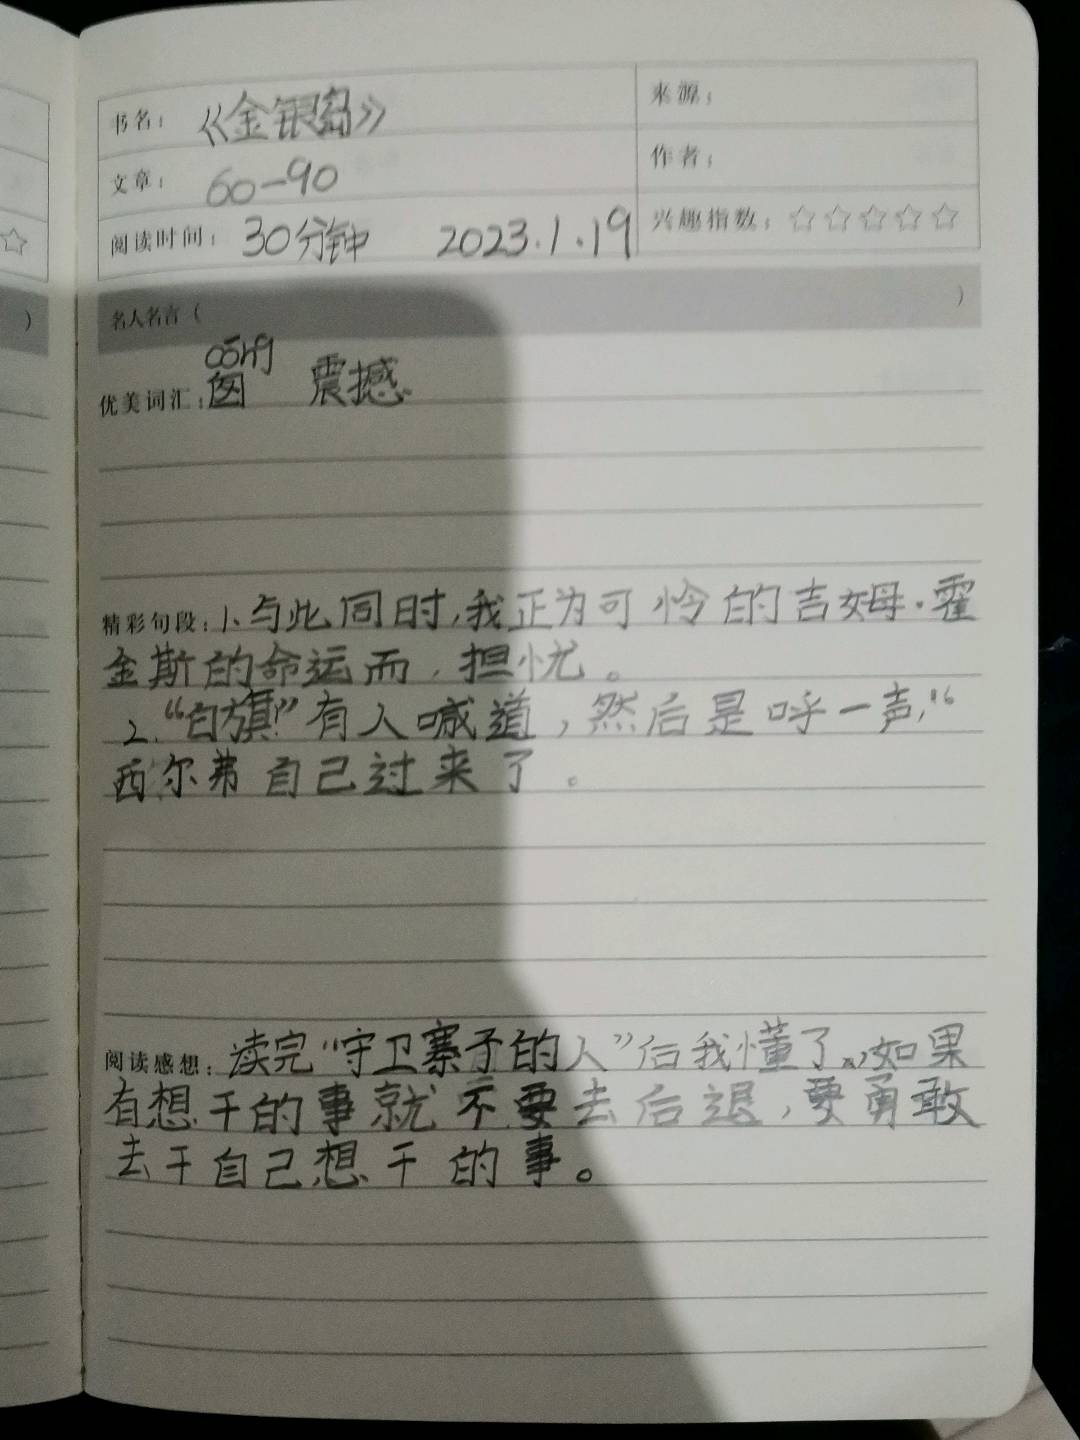 书名： 《金银岛》
来源：
文章： 60-90
作者：
阅读时间： 30分钟 2023.1.19
兴趣指数：☆☆☆☆☆
名人名言（ ）
优美词汇： 震撼
精彩句段：1、与此同时，我正为可怜的吉姆·霍
金斯的命运而，担忧。
2、“白旗！”有人喊道，然后是呼一声，“
西尔弗自己过来了。
阅读感想：读完“守卫寨予的人”后我懂了，如果
有想干的事就不要去后退，要勇敢
去干自己想干的事。